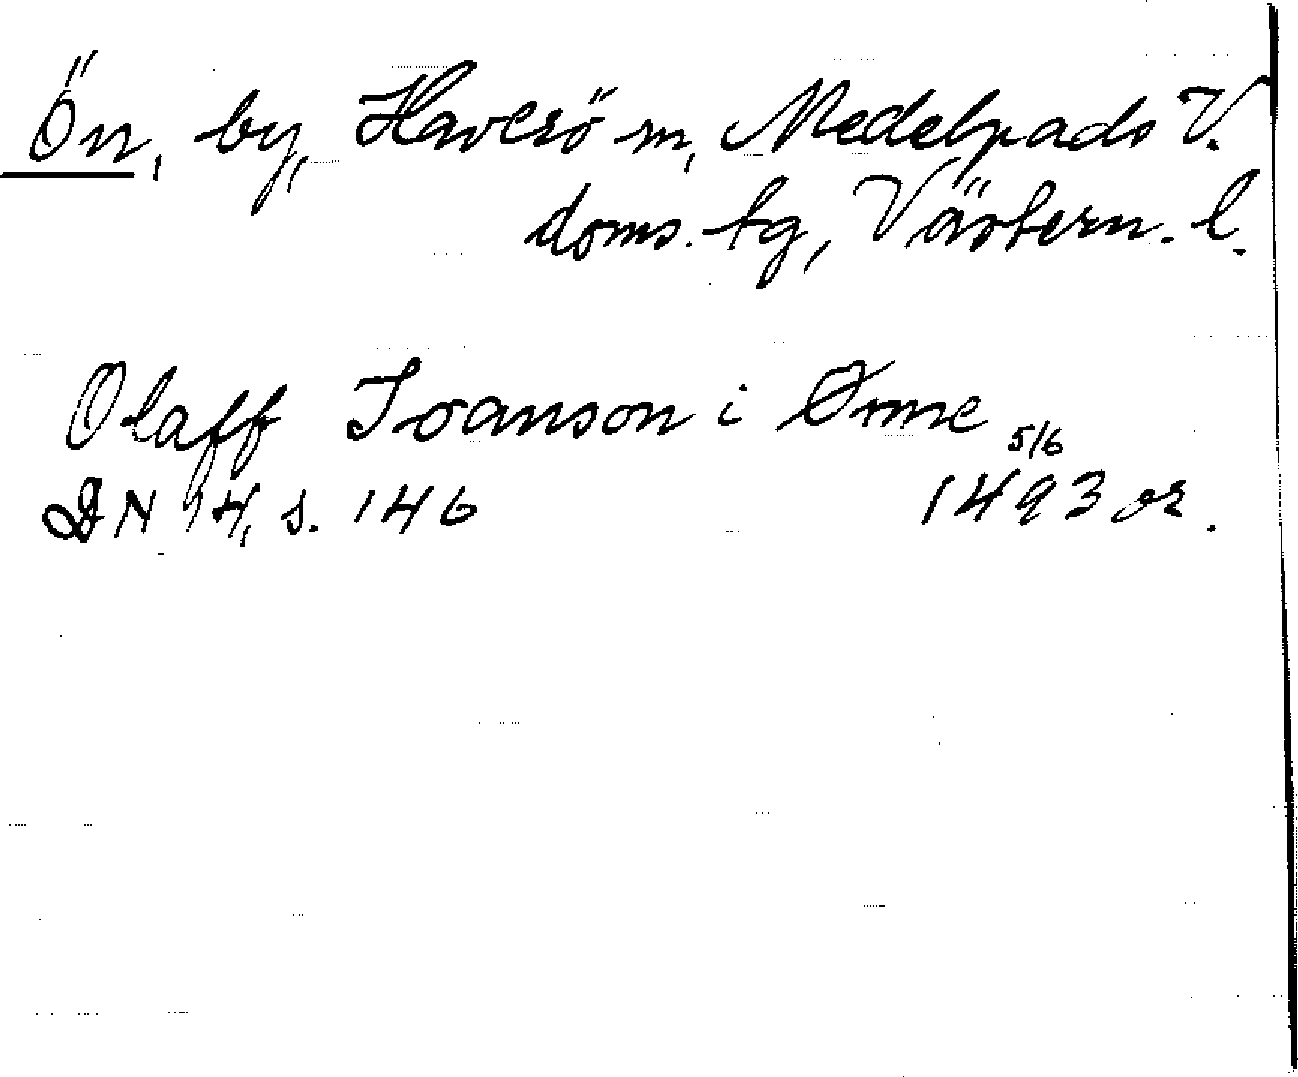 Ön, by, Haverö sn, Medelpads V.
doms. tg, Västern. l.
Olaff Ioanson i Ørnne 5/6
DN 14, s. 146 1493 or.